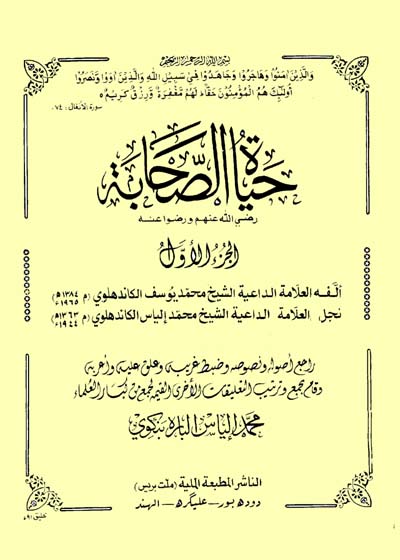 بسم الله الرحمن الرحيم
وَالَّذِينَ آمَنُوا وَهَاجَرُوا وَجَاهَدُوا فِي سَبِيلِ اللَّهِ وَالَّذِينَ آوَوا وَنَصَرُوا
أُولَٰئِكَ هُمُ الْمُؤْمِنُونَ حَقًّا لَهُمْ مَغْفِرَةٌ وَرِزْقٌ كَرِيمٌ ○
سورة الأنفال : ٧٤
حياة الصَّحابة
رضي الله عنهم ورضوا عنه
الجزء الأول
ألّفه العلامة الداعية الشيخ محمّد يوسف الكاندهلوي (م ١٣٨٤ھ ١٩٦٥ء)
نجل العلامة الداعية الشيخ محمّد إلياس الكاندهلوي (م ١٣٦٣ھ ١٩٤٤ء)
راجع أصوله ونصوصه وضبط غريبه وعلق عليه وأعربه
وقام بجمع وترتيب التعليقات الأخرى القيمة لجمع من كبار العلماء
محمّد إلياس الباره بنكوي
الناشر المطبعة الملية (ملت پریس)
دودہ پور - علیگرھ - الهند